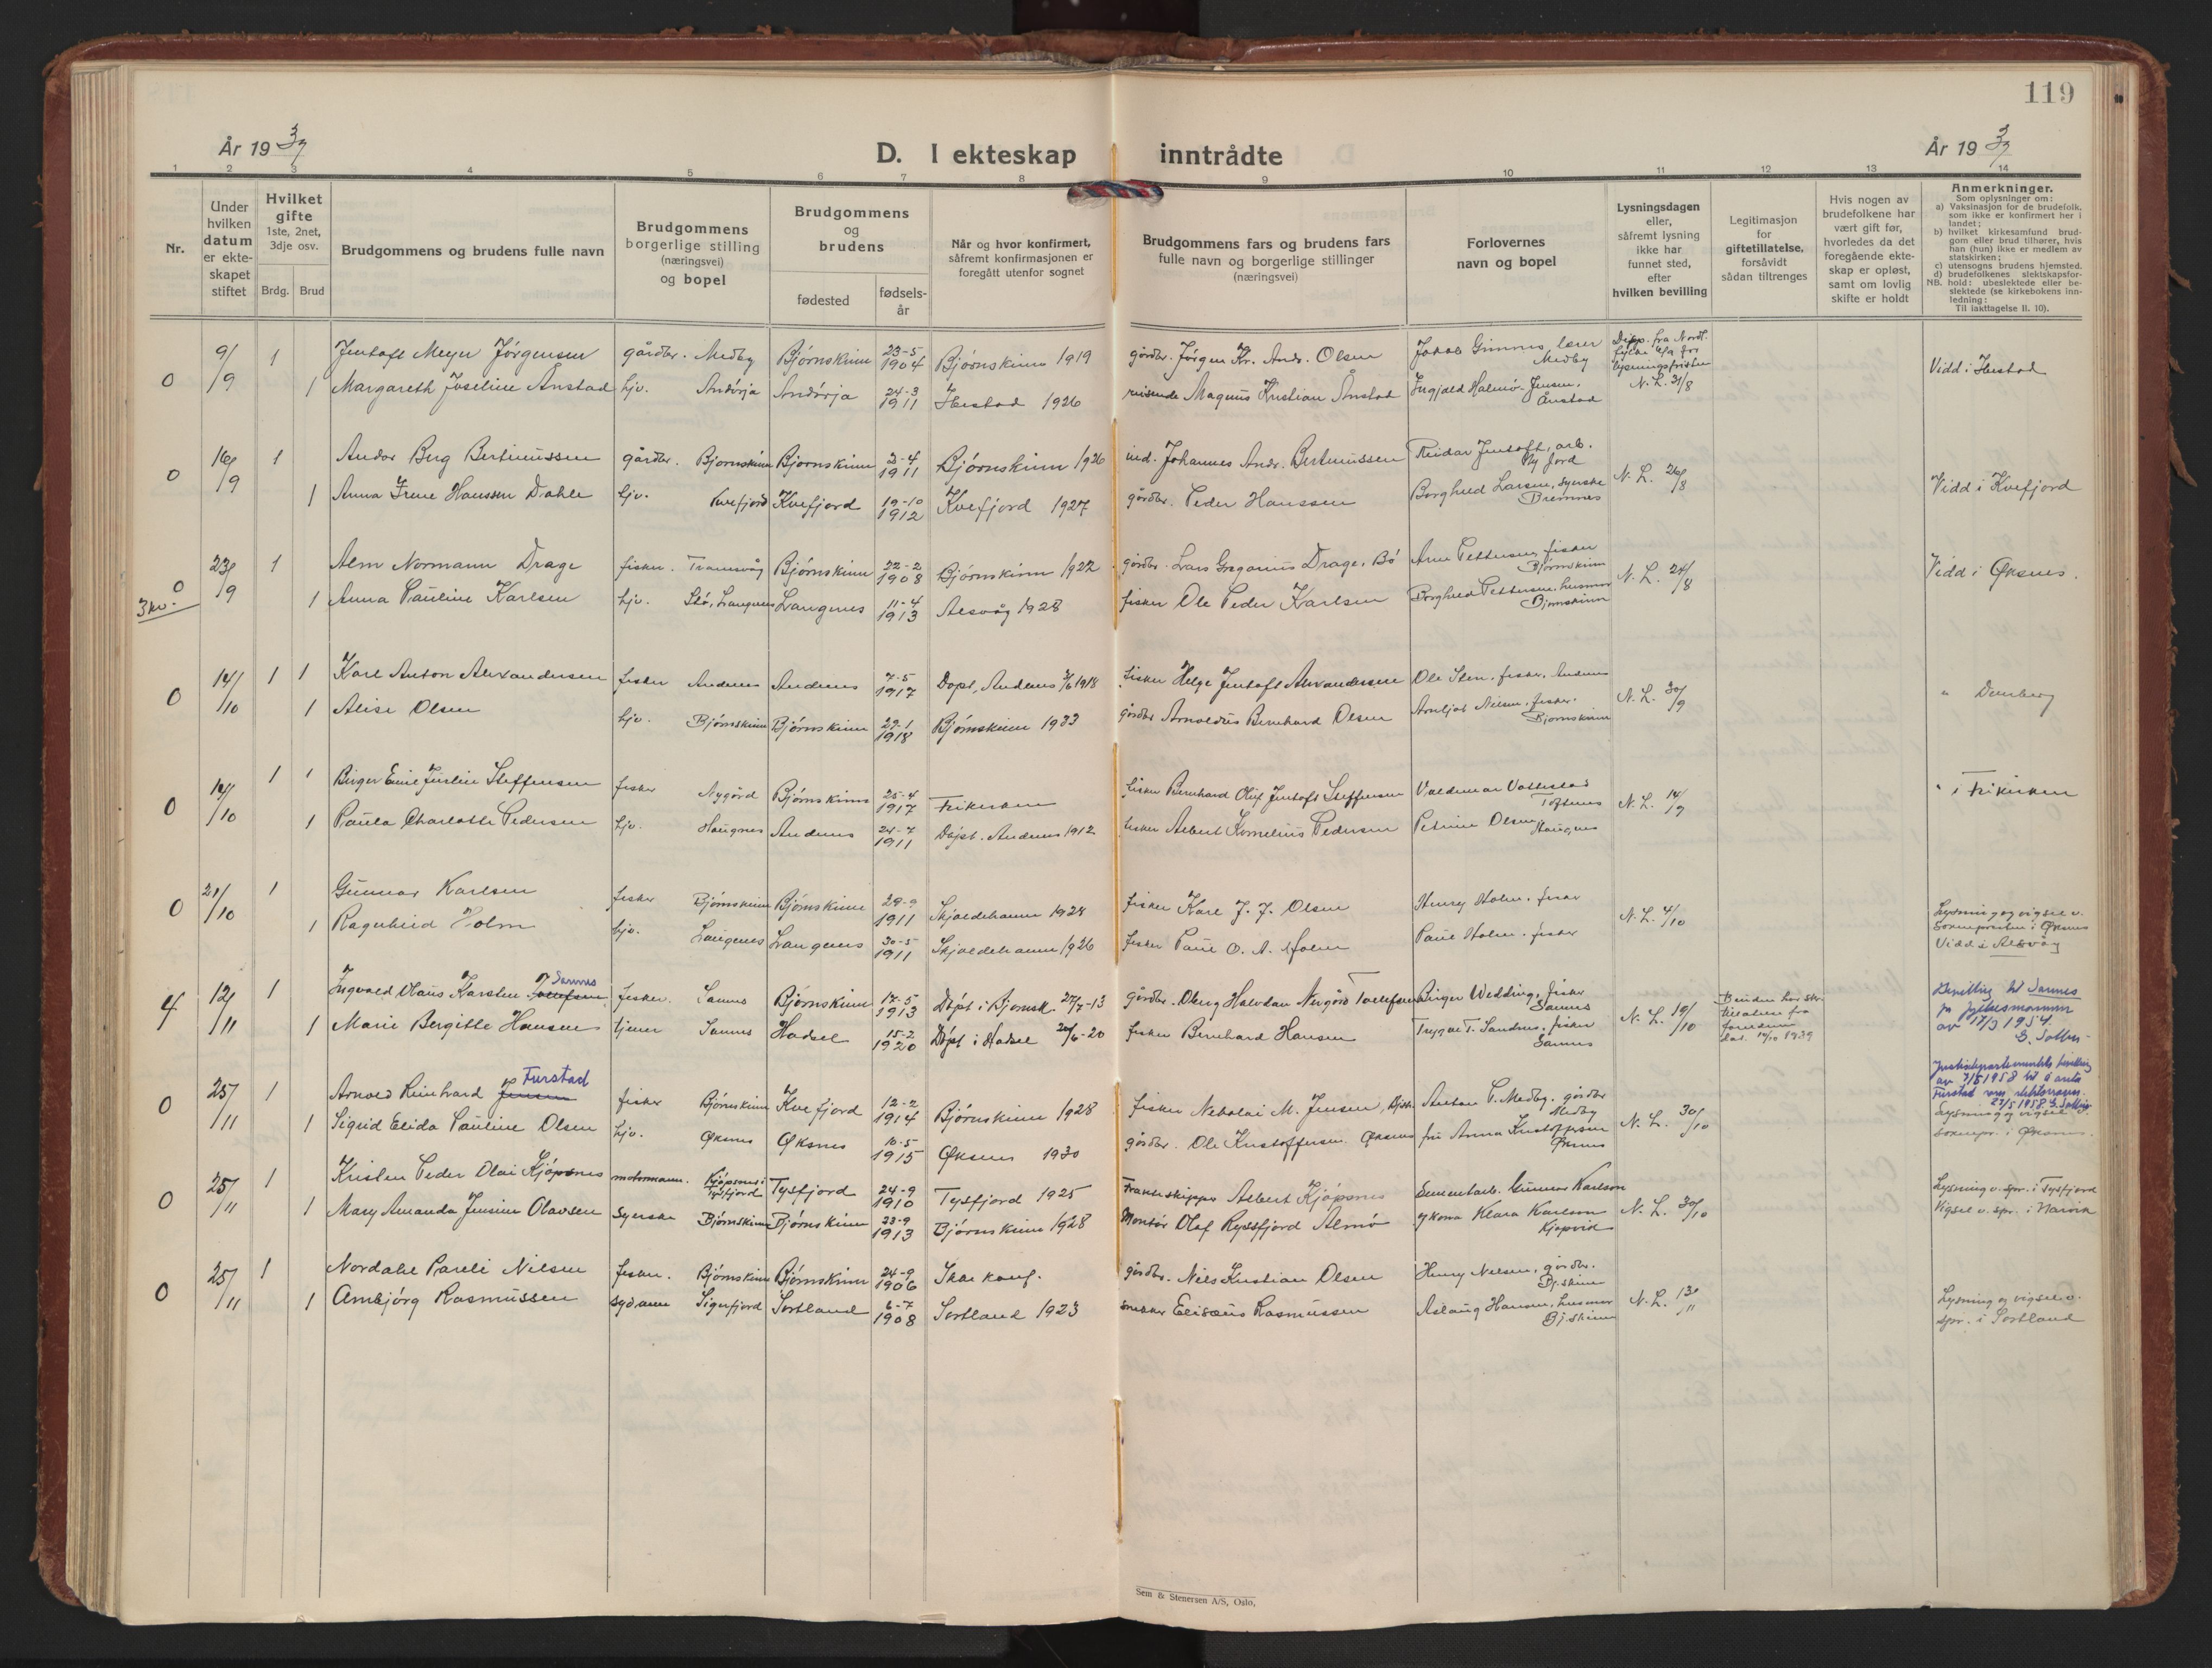 119
År 19 37
D. I ekteskap inntrådte
År 19 37
1 2 3 4 5 6 7 8 9 10 11 12 13 14
Nr.
Under hvilken datum er ekteskapet stiftet
Hvilket gifte 1ste, 2net, 3dje osv.
Brdg. Brud
Brudgommens og brudens fulle navn
Brudgommens borgerlige stilling (næringsvei) og bopel
Brudgommens og brudens
fødested
fødsels-år
Når og hvor konfirmert, såfremt konfirmasjonen er foregått utenfor sognet
Brudgommens fars og brudens fars fulle navn og borgerlige stillinger (næringsvei)
Forlovernes navn og bopel
Lysningsdagen eller, såfremt lysning ikke har funnet sted, efter hvilken bevilling
Legitimasjon for giftetillatelse, forsåvidt sådan tiltrenges
Hvis nogen av brudefolkene har vært gift før, hvorledes da det foregående ekteskap er opløst, samt om lovlig skifte er holdt
Anmerkninger.
Som oplysninger om:
a) Vaksinasjon for de brudefolk. som ikke er konfirmert her i landet;
b) hvilket kirkesamfund brudgom eller brud tilhører, hvis han (hun) ikke er medlem av statskirken;
c) utensogns brudens hjemsted.
d) brudefolkenes slektskapsforhold: ubeslektede eller beslektede (se kirkebokens innledning:
NB.
Til iakttagelse II. 10).
0 9/9 1 Jentoft Meyer Jörgensen gårdbr. Medby Bjørnskinn 23-5 1904 Bjørnskinn 1919 gårdbr. Jörgen Kr. Andr. Olsen Jakob Gimnes, lærer Medby
1 Margareth Joseline Ånstad hjv. Andörja Andörja 24-3 1911 Ibestad 1926 reisende Magnus Kristian Ånstad Ingjald Halmø-Jensen, Ånstad N. L. 31/8 Vidd i Ibestad
0 16/9 1 Andor Berg Bertinussen gårdbr. Bjørnskinn Bjørnskinn 2-4 1911 Bjørnskinn 1926 ind. Johannes Andr. Bertinussen Reidar Jentoft, arb. Ny Jord
1 Anna Irene Hanssen Dahle hjv. Kvefjord Kvefjord 19-10 1912 Kvefjord 1927 gårdbr. Peder Hanssen Borghild Larsen, syerske Bremnes N. L. 26/8 Vidd i Kvefjord
0 3kv. 23/9 1 Alm Normann Drage fisker. Tranesvåg Bjørnskinn 22-2 1908 Bjørnskinn 1922 gårdbr. Lars Gregorius Drage, Bö Arne Pettersen, fisker Bjørnskinn
1 Anna Pauline Karlsen hjv. Stö, Langenes Langenes 11-4 1913 Alsvåg 1928 fisker Ole Peder Karlsen Borghild Pettersen, husmor Bjørnskinn N. L. 24/8 Vidd i Øksnes.
0 14/10 1 1 Karl Anton Alexandersen fisker Andenes Andenes 7-5 1917 Døpt, Andenes 1918 fisker Helge Jentoft Alexandersen Ole Sten, fisker, Andenes
1 Alise Olsen hjv. Bjørnskinn Bjørnskinn 27-1 1918 Bjørnskinn 1933 gårdbr Arnoldus Bernhard Olsen Arnljot Nielsen, fisker. Bjørnskinn N. L. 30/9 " Dverberg
0 14/10 1 1 Birger Emil Juslin Steffensen fisker Nygård Bjørnskinn 25-4 1917 Frikirken fisker Bernhard Oluf Jentoft Steffensen Valdemar Vottestad Toftenes
1 Paula Charlotte Pedersen hjv. Haugnes Andenes 24-7 1911 Døpt. Andenes 1912 fisker Albert Kornelius Pedersen Petrine Olsen, Haugnes N. L. 14/9 " i Frikirken
0 21/10 1 Gunnar Karlsen fisker Bjørnskinn Bjørnskinn 29-9 1911 Skjoldehamn 1928 fisker Karl J. J. Olsen Henry Holm, fisker
1 Ragnheid Holm hjv. Langenes Langenes 30-5 1911 Skjoldehamn 1926 fisker Paul O. A. Holm Paul Holm. fisker N. L. 4/10 Lysning og vigsel v. Soknepresten i Øksnes Vidd i Alsvåg
4 12/11 1 Ingvald Olaus Karsten Tollefsen Sannes fisker. Sannes Bjørnskinn 17-5 1913 Døpt i Bjørnsk. 27/7-13 gårdbr. Oberg Halvdan Nergård Tollefsen Birger Wedding, fisker Sannes
1 Marie Bergitte Hansen tjener Sannes Hadsel 15-2 1920 Døpt i Hadsel 20/6-20 fisker Bernhard Hansen Trygve T. Sandnes, fisker Sannes N. L. 19/10 Bruden har skr. tillatelse fra foreldrene dat. 14/10 1939 Bevilling til Sannes fra fylkesmannen av 17/3 1954.
0 25/11 1 Arnold Reinhard Jensen Furstad fisker Bjørnskinn Kvefjord 12-2 1914 Bjørnskinn 1928 fisker Nikolai M. Jensen, Bjsk. Anton P. Medby. gårdbr Medby Justisdepartementets bevilling av 7/5 1958 til å anta Furstad som slektsnavn. 27/5 1958
1 Sigrid Elida Pauline Olsen hjv. Øksnes Øksnes 10-5 1915 Øksnes 1930 gårdbr. Ole Kristoffersen Øksnes fru Anna Kristoffersen Øksnes N. L. 30/10 Lysning og vigsel v. soknepr. i Øksnes.
0 25/11 1 Kristen Peder Olai Kjöpsnes motormann. Kjöpsnes i Tysfjord Tysfjord 24-9 1910 Tysfjord 1925 Frakteskipper Albert Kjöpsnes Sementarb. Gunnar Karlson
1 Mary Amanda Jensine Olavsen syerske Bjørnskinn Bjørnskinn 23-9 1913 Bjørnskinn 1928 Montör Olaf Ryssfjord Almö og kona Klara Karlson Kjopvik N. L. 30/10 Lysning v. spr. i Tysfjord Vigsel v. spr. i Narvik
0 25/11 1 Nordahl Pareli Nilsen fisker. Bjørnskinn Bjørnskinn 24-9 1906 Ikke konf. gårdbr. Nils Kristian Olsen Henry Nilsen, gårdbr. Bj.skinn
1 Ambjörg Rasmussen sydame Sigerfjord Sortland 6-7 1908 Sortland 1923 snekker Elisæus Rasmussen Aslaug Hansen, husmor Bj.skinn N. L. 13/11 Lysning og vigsel v. spr. i Sortland
Sem & Stenersen A/S, Oslo.